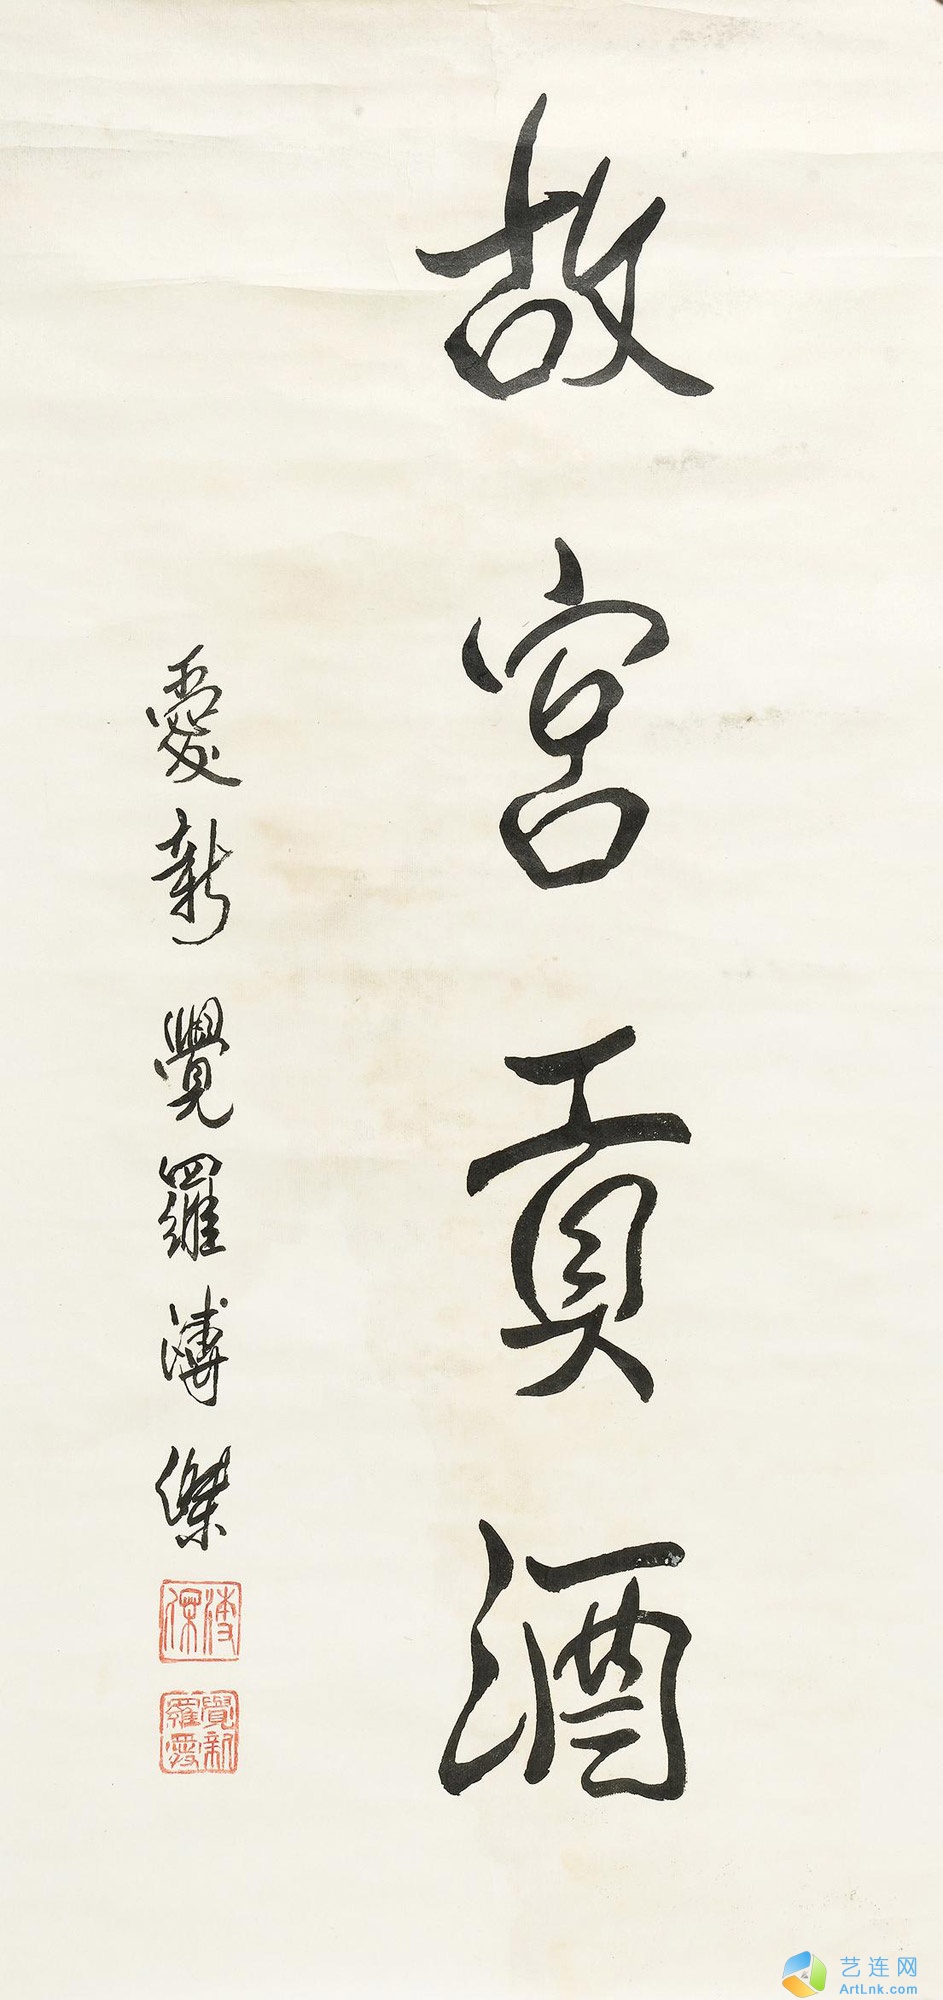 故宮貢酒
愛新覺羅溥傑
溥傑
覺新羅愛
艺连网
ArtLnk.com